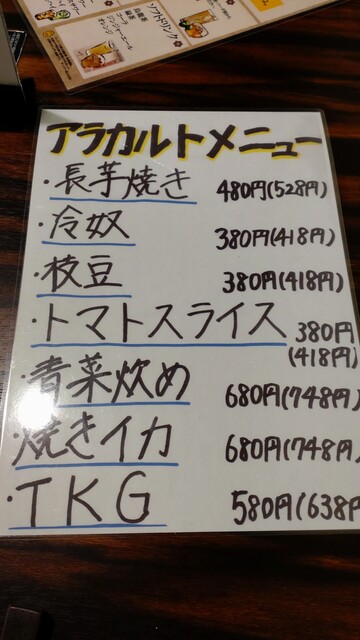 ソフトドリンク
コーラ
ジンジャーエール
オレンジ
アラカルトメニュー
・長芋焼き 480円(528円)
・冷奴 380円(418円)
・枝豆 380円(418円)
・トマトスライス 380円
(418円)
・青菜炒め 680円(748円)
・焼きイカ 680円(748円)
・TKG 580円(638円